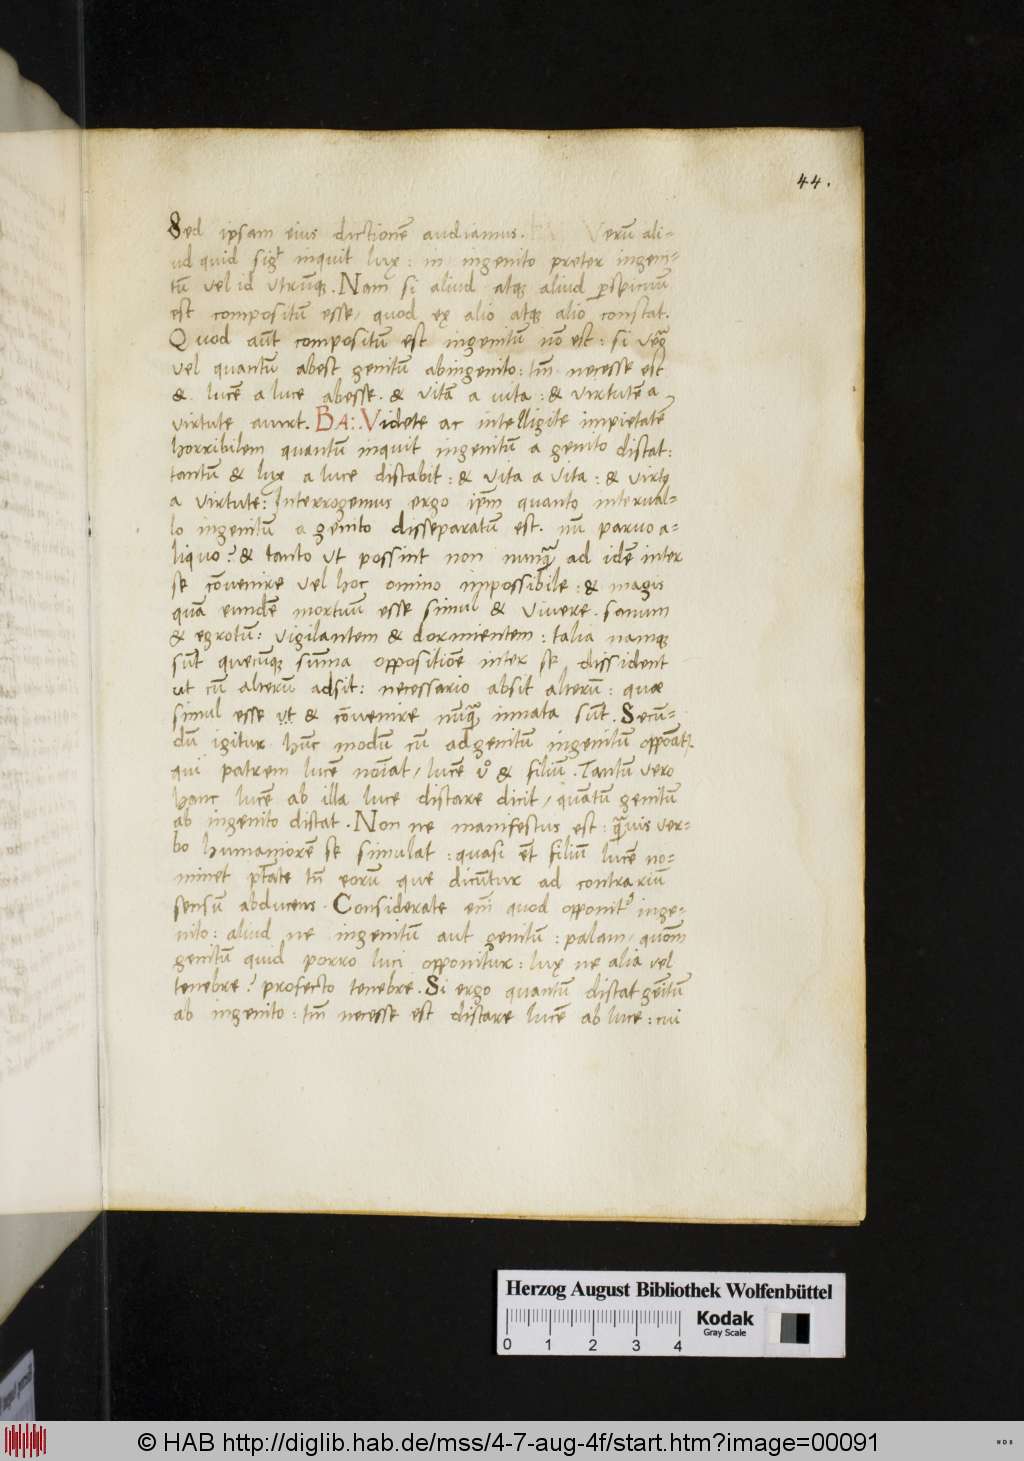 44.
Sed ipsam eius dictionē audiamus. Verū ali=
ud quid sig̃t inquit lux: in ingenito preter ingeni=
tū vel id vtrūq. Nam si aliud atq aliud ꝑspicuū
est compositū esse, quod ex alio atq alio constat.
Quod aūt compositū est ingenitū nō est: si
vel quantū abest genitū abingenito: tm̄ necesse est
& lucē a luce abesse. & vitā a vita: & virtutē a
virtute aiunt. BA:. Videte ac intelligite impietatē
horribilem quantū inquit ingenitū a genito distat:
tantū & lux a luce distabit: & vita a vita: & virtꝯ
a virtute: Interrogemus ergo ip̄m quanto interual=
lo ingenitū a genito disseparatū est. nū paruo a=
liquo? & tanto vt possint non nunq̄ ad idē inter
se cōvenire vel hoc omino impossibile: & magis
quā eundē mortuū esse simul & vivere. sanum
& egrotū: vigilantem & dormientem: talia namq
sūt quecūq sūma oppositiōe inter se dissident
ut cū alterū adsit: necessario absit alterū: quae
simul esse ut & cōvenire nūq̄ innata sūt. Secū=
dū igitur hūc modū cū adgenitū ingenitū oppōat.
qui patrem lucē noīat, lucē v̊ & filiū. Tantū vero
hanc lucē ab illa luce distare dicit, quātū genitū
ab ingenito distat. Non ne manifestus est: q̄uis ver=
bo humaniorē se simulat: quasi ēt filiū lucē no=
minet ptāte tn̄ eorū que dicūtur ad contrariū
sensū abducens. Considerate em̄ quod opponitꝰ inge=
nito: aliud ne ingenitū aut genitū: palam, quom̄
genitū quid porro luci opponitur: lux ne alia vel
tenebre? profecto tenebre. Si ergo quantū distat gēitū
ab ingenito: tm̄ necesse est distare lucē ab luce: cui
Herzog August Bibliothek Wolfenbüttel
Kodak
Gray Scale
0 1 2 3 4
© HAB http://diglib.hab.de/mss/4-7-aug-4f/start.htm?image=00091